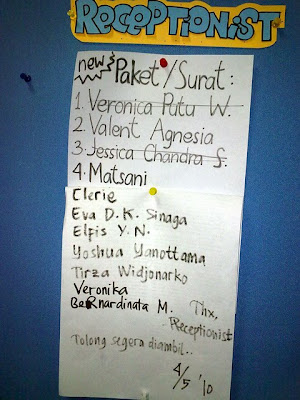 RECEPTIONIST
new
Paket/Surat:
1. Veronica Putu W.
2. Valent Agnesia
3. Jessica Chandra S.
4. Matsani
Clerie
Eva D.K. Sinaga
Elfis Y.N.
Yoshua Yanottama
Tirza Widjonarko
Veronika
BeRnardinata M.
Thx,
Receptionist
Tolong segera diambil..
4/5 '10